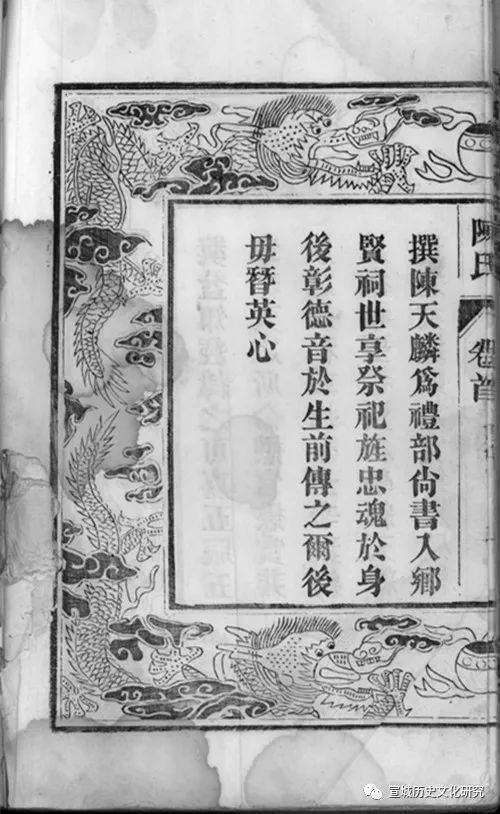 陳氏
卷首
撰陳天麟爲禮部尙書入鄉
賢祠世享祭祀旌忠魂於身
後彰德音於生前傳之爾後
毋晉英心
宣城历史文化研究